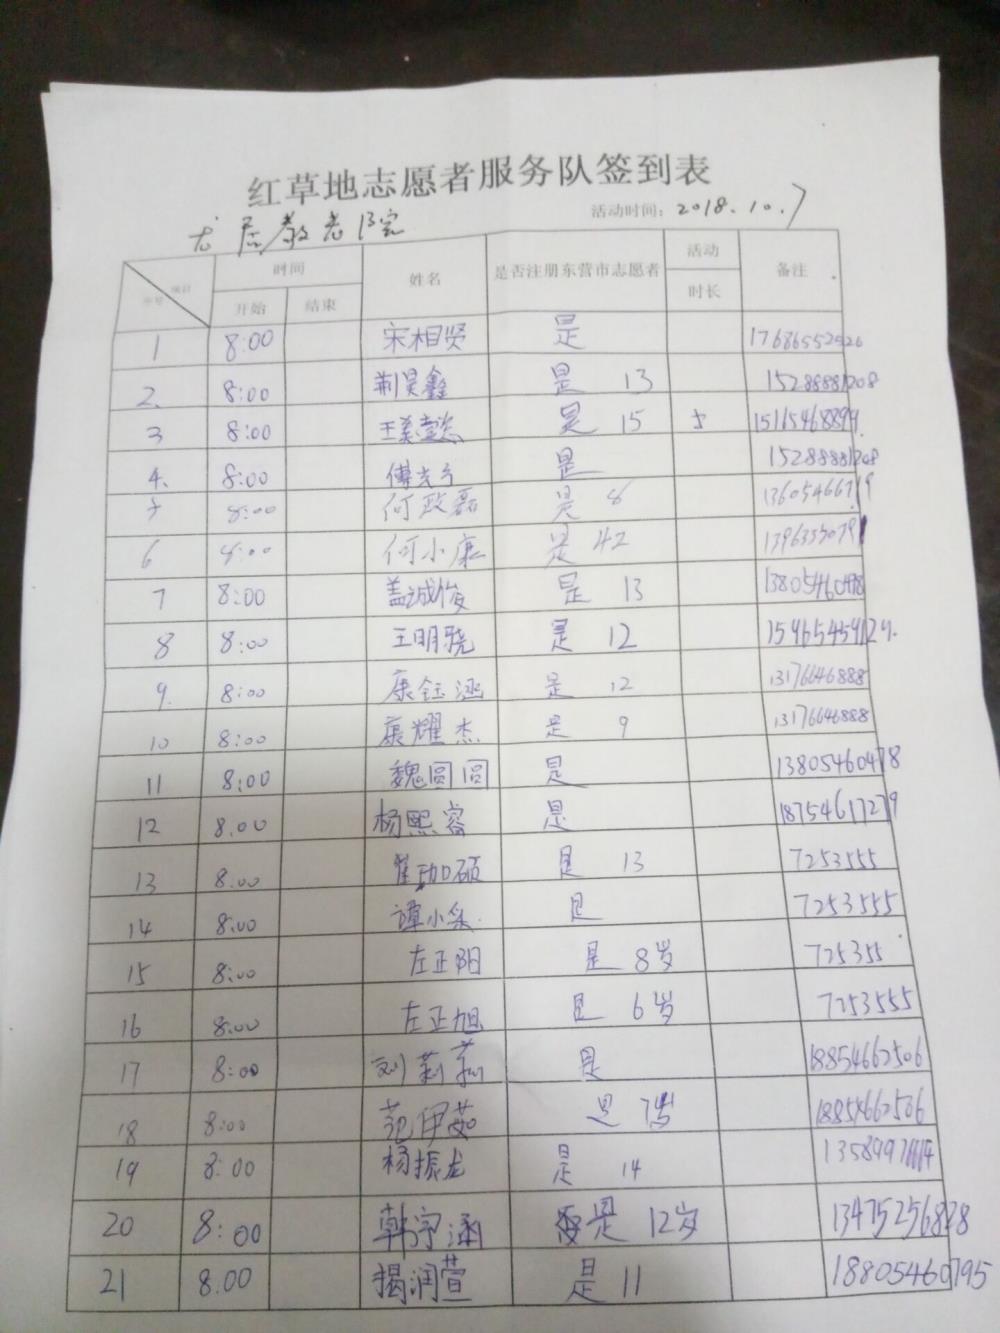 红草地志愿者服务队签到表
龙居敬老院 活动时间: 2018.10.7
项目 时间 姓名 是否注册东营市志愿者 活动 备注
序号 开始 结束 时长
1 8:00 宋相贤 是 17686552526
2. 8:00 荆昊鑫 是 13 15288881208
3 8:00 是 15 15115468899.
4. 8:00 是 15288881208
5 8:00 何政磊 是 8 13605466719
6 8:00 何小康 是 42
7 8:00 盖诚俊 是 13 13805460478
8 8:00 王明骁 是 12 15465459124.
9. 8:00 康钰涵 是 12 13176646888
10 8:00 康耀杰 是 9 13176646888
11 8:00 魏圆圆 是 13805460478
12 8.00 杨熙容 是 18754617279
13 8:00 崔珈硕 是 13 7253555
14 8:00 谭小朵. 是 7253555
15 8:00 左正阳 是 8岁 725355
16 8:00 左正旭 是 6岁 7253555
17 8:00 刘莉莉 是 18854662506
18 8:00 范伊茹 是 7岁 18854662506
19 8:00 杨振龙 是 14
20 8:00 韩宇涵 是 12岁 13475256828
21 8.00 揭润萱 是 11 18805460795